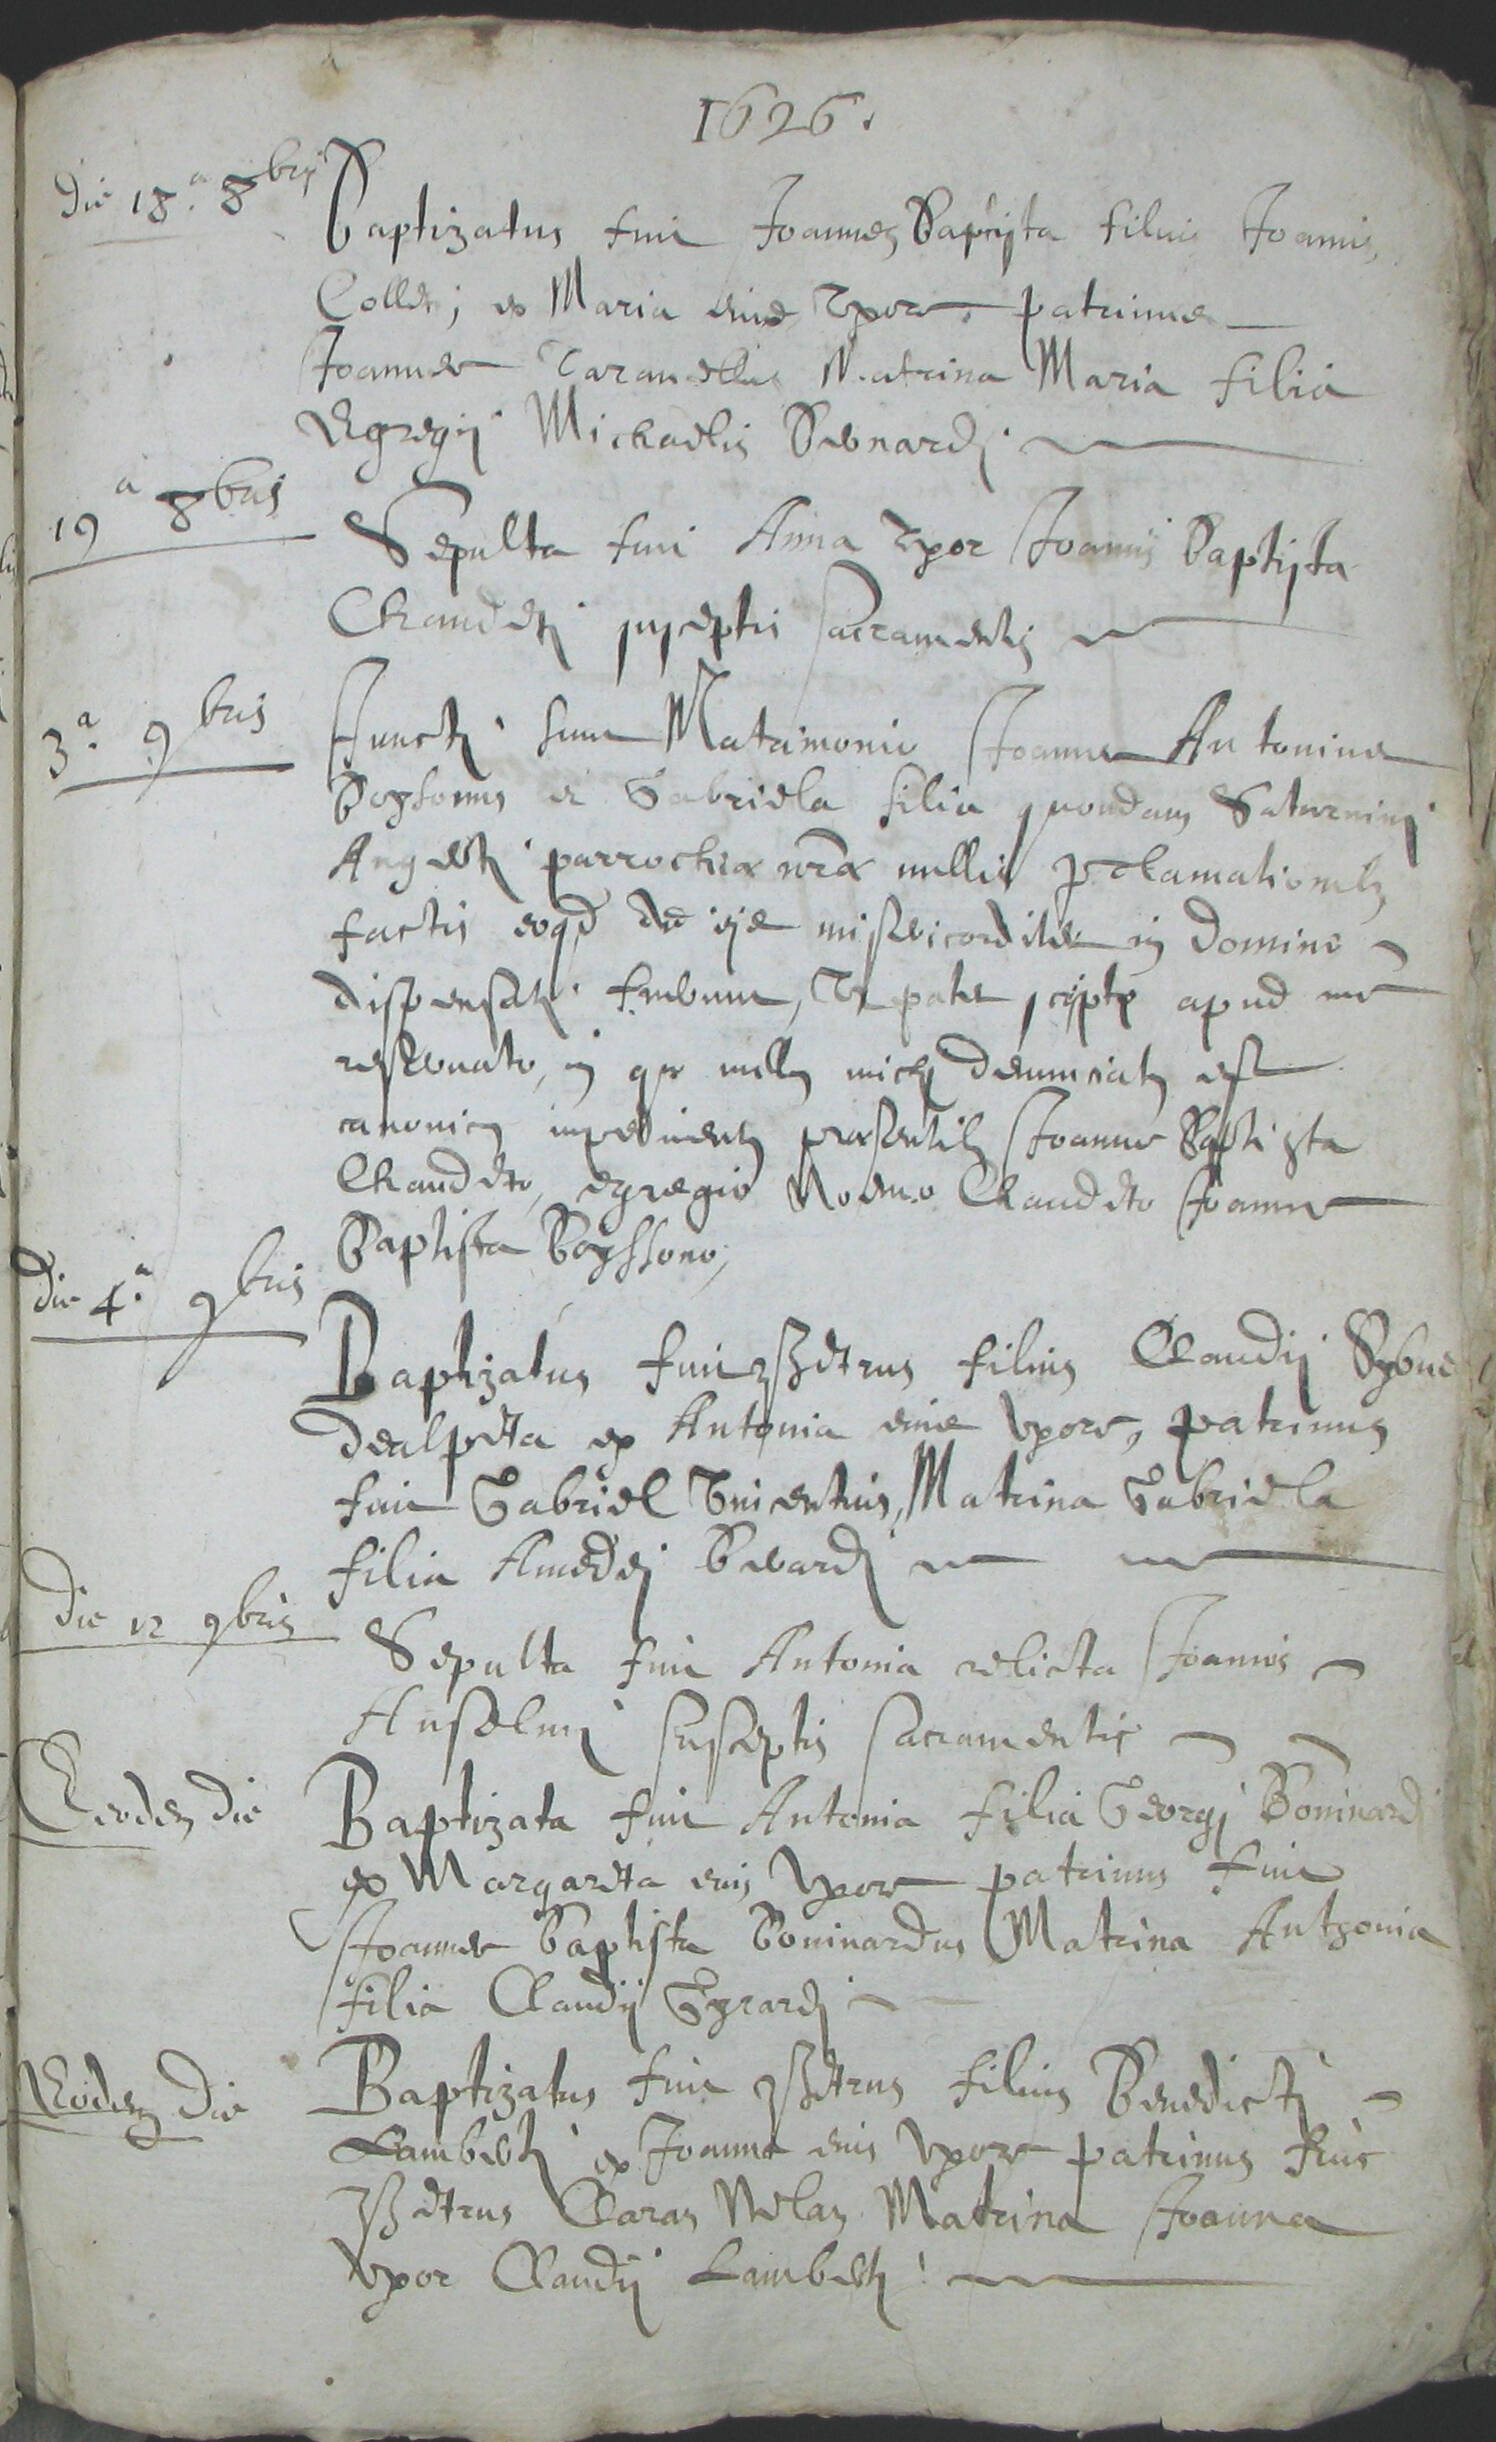 1626.
die 18.a 8bris
Baptizatus fuit Joannes Baptista filius Joannis
Colleti ex Maria eius Vxore, patrinus
Joannes Tarauellus Matrina Maria filia
Egregij Michaelis Bernardi
19a 8bris
Sepulta fuit Anna Vxor Joannis Baptista
Chaudeti susceptis sacramentis
3.a 9bris
Juncti sunt Matrimonio Joannes Antonius
Boyssonus et Gabriela filia quondam Saturnini
parrochiæ nræ nullis proclamationib
factis misericorditer in Domino
dispensati fuerunt, Vt patet scripto apud me
reseruato, in quo nullum michi denunciatum est
canonicum impedimentum præsentib Joanne Baptista
Chaudeto, egregio Chaudeto Joanne
Baptista Boyssono,
die 4.a 9bris
Baptizatus fuit Petrus filius Claudij
dealpeta ex Antonia eius Vxore, patrinus
fuit Gabriel Vincentius, Matrina Gabriela
filia Amedei Berardi
die 12 9bris
Sepulta fuit Antonia relicta Joannis
Anselmi susceptis sacramentis
Eodem die
Baptizata fuit Antonia filia Georgij Boninardi
ex Margareta eius Vxore patrinus fuit
Joannes Baptista Boninardus Matrina Anthonia
filia Claudij Gyrardi
Eodem die
Baptizatus fuit Petrus filius Benedicti
Lamberti ex Joanna eius Vxore patrinus fuit
Petrus Matrina Joanna
Vxor Claudij Lamberti